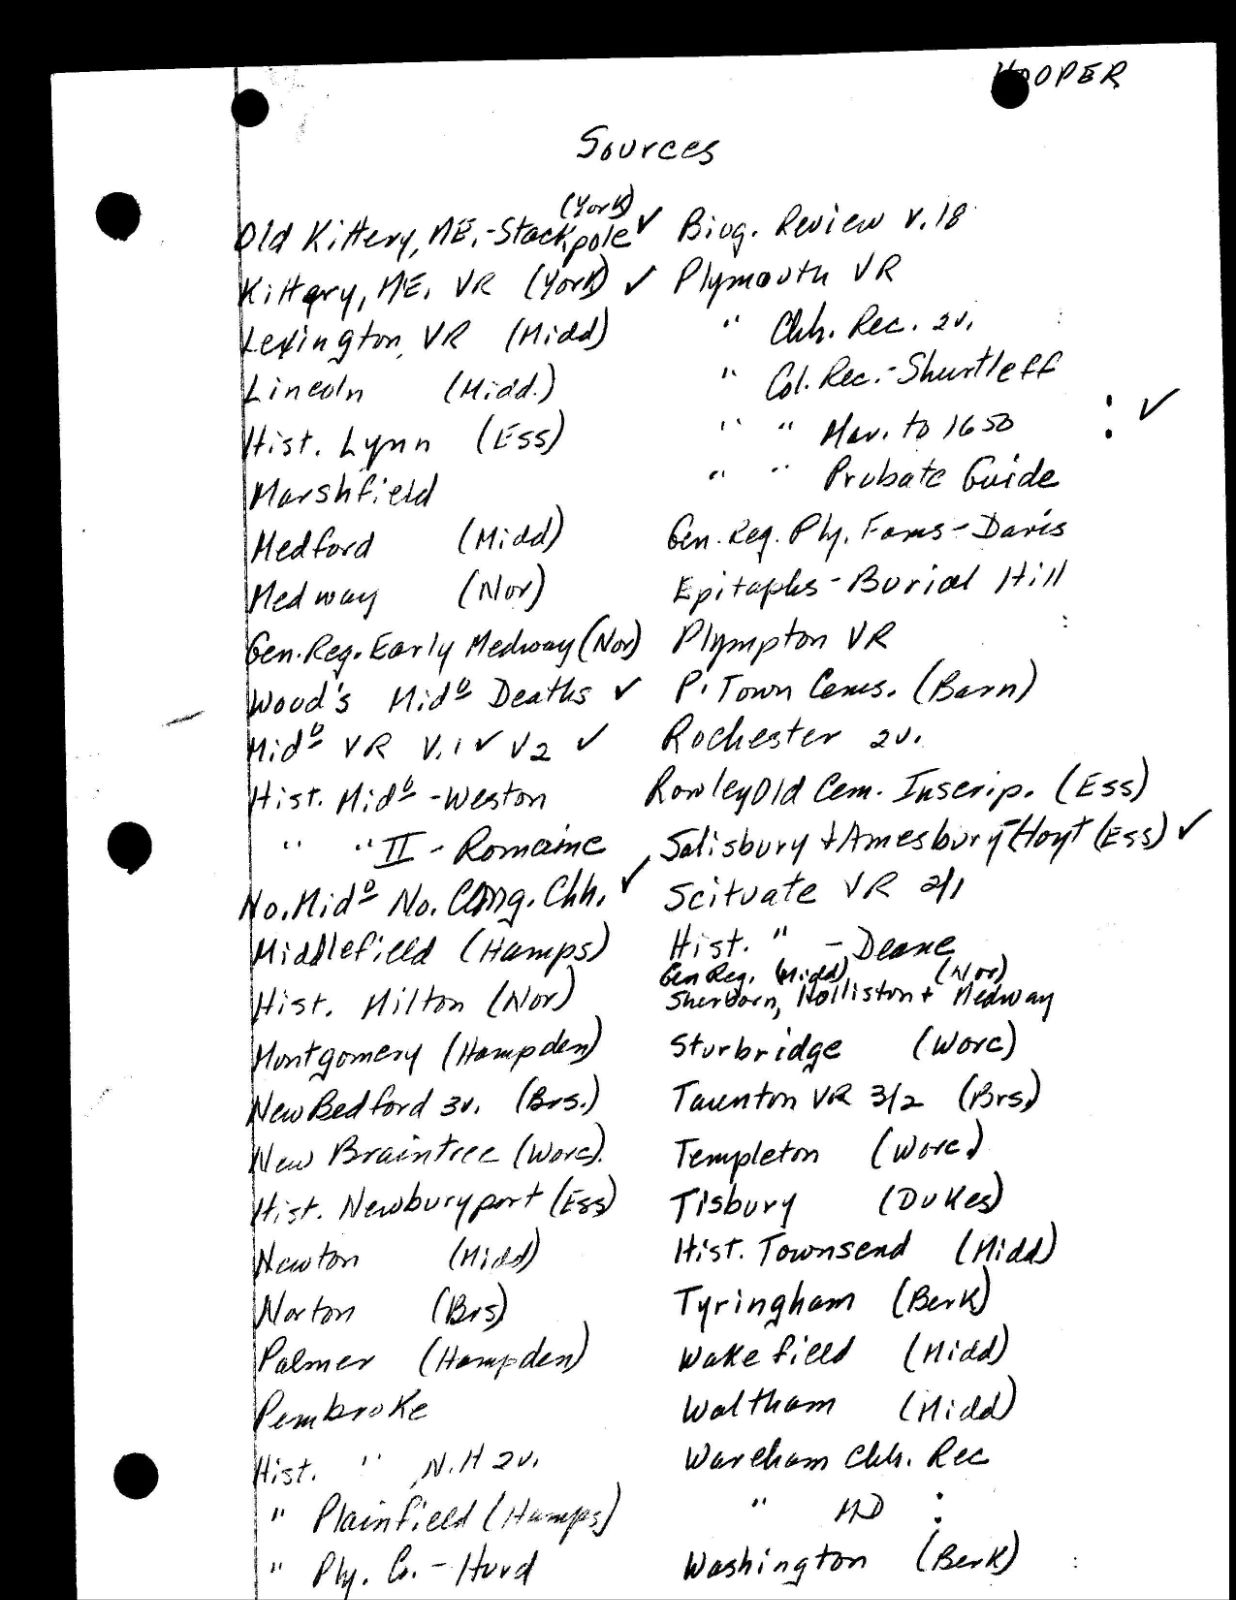 HOOPER
Sources
Old Kittery, ME.-Stackpole (York) ✓
Kittery, ME. VR (York) ✓
Lexington VR (Midd)
Lincoln (Midd.)
Hist. Lynn (Ess)
Marshfield
Medford (Midd)
Medway (Nor)
Gen. Reg. Early Medway (Nor)
Wood's Mid° Deaths ✓
Mid° VR V.1 ✓ V2 ✓
Hist. Mid° - Weston
" " II - Romaine
No. Mid° No. Cong. Chh. ✓
Middlefield (Hamps)
Hist. Milton (Nor)
Montgomery (Hampden)
New Bedford 3v. (Brs.)
New Braintree (Worc).
Hist. Newburyport (Ess)
Newton (Midd)
Norton (Brs)
Palmer (Hampden)
Pembroke
Hist. " N.H 2v.
" Plainfield (Hamps)
" Ply. Co. - Hurd
Biog. Review v. 18
Plymouth VR
" Chh. Rec. 2v.
" Col. Rec.-Shurtleff
" " Mar. to 1650 : ✓
" " Probate Guide
Gen. Reg. Ply. Fams - Davis
Epitaphs - Burial Hill
Plympton VR
P. Town Cems. (Barn)
Rochester 2v.
Rowley Old Cem. Inscrip. (Ess)
Salisbury + Amesbury-Hoyt (Ess) ✓
Scituate VR 2/1
Hist. " - Deane
Gen Reg. (Midd) (Nor)
Sherborn, Holliston + Medway
Sturbridge (Worc)
Taunton VR 3/2 (Brs)
Templeton (Worc)
Tisbury (Dukes)
Hist. Townsend (Midd)
Tyringham (Berk)
Wakefield (Midd)
Waltham (Midd)
Wareham Chh. Rec
" MD :
Washington (Berk)